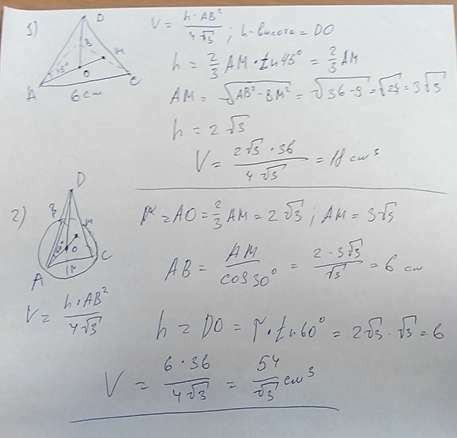 1)
D
B
M
45°
O
A
C
6 см
V = h·AB² / 4√3 ; h-высота = DO
h = 2/3 AM · tn45° = 2/3 AM
AM = √AB² - BM² = √36 - 9 = = 3√3
h = 2√3
V = 2√3 · 36 / 4√3 = 18 см³
2)
D
M
O
A
C
V = h·AB² / 4√3
= AO = 2/3 AM = 2√3 ; AM = 3√3
AB = AM / cos30° = 2·3√3 / √3 = 6 см
h = DO = r · tn60° = 2√3 · √3 = 6
V = 6·36 / 4√3 = 54 / √3 см³